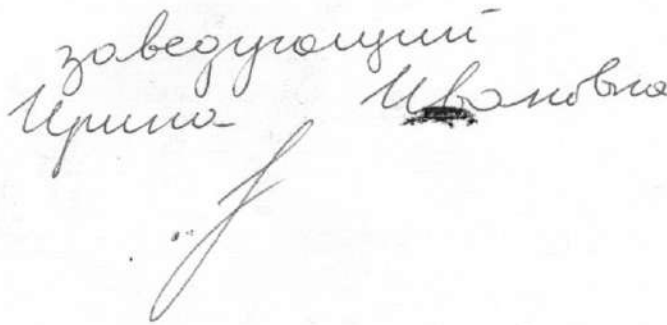 заведующий
Ирина Ивановна